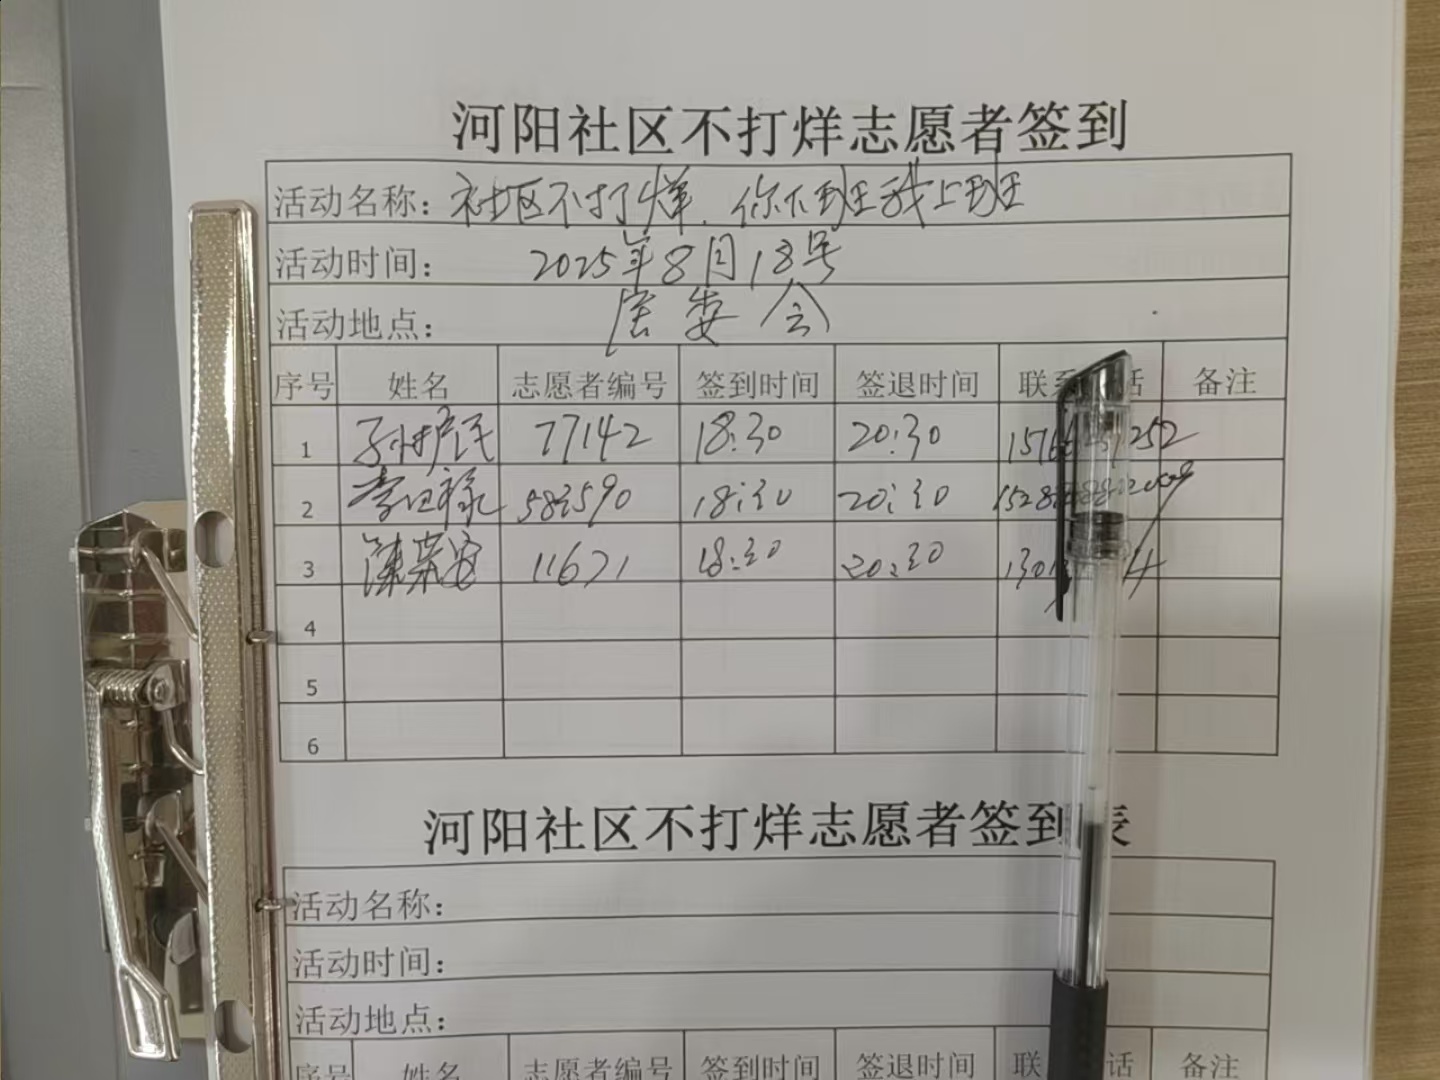 河阳社区不打烊志愿者签到
活动名称：社区不打烊.你下班我上班
活动时间：2025年8月18号
活动地点：居委会
序号 姓名 志愿者编号 签到时间 签退时间 联系 话 备注
1 孙护民 77142 18:30 20:30
2 583590 18:30 20:30
3 陈荣安 11671 18:30 20:30
4
5
6
河阳社区不打烊志愿者签到表
活动名称：
活动时间：
活动地点：
序号 姓名 志愿者编号 签到时间 签退时间 联 话 备注